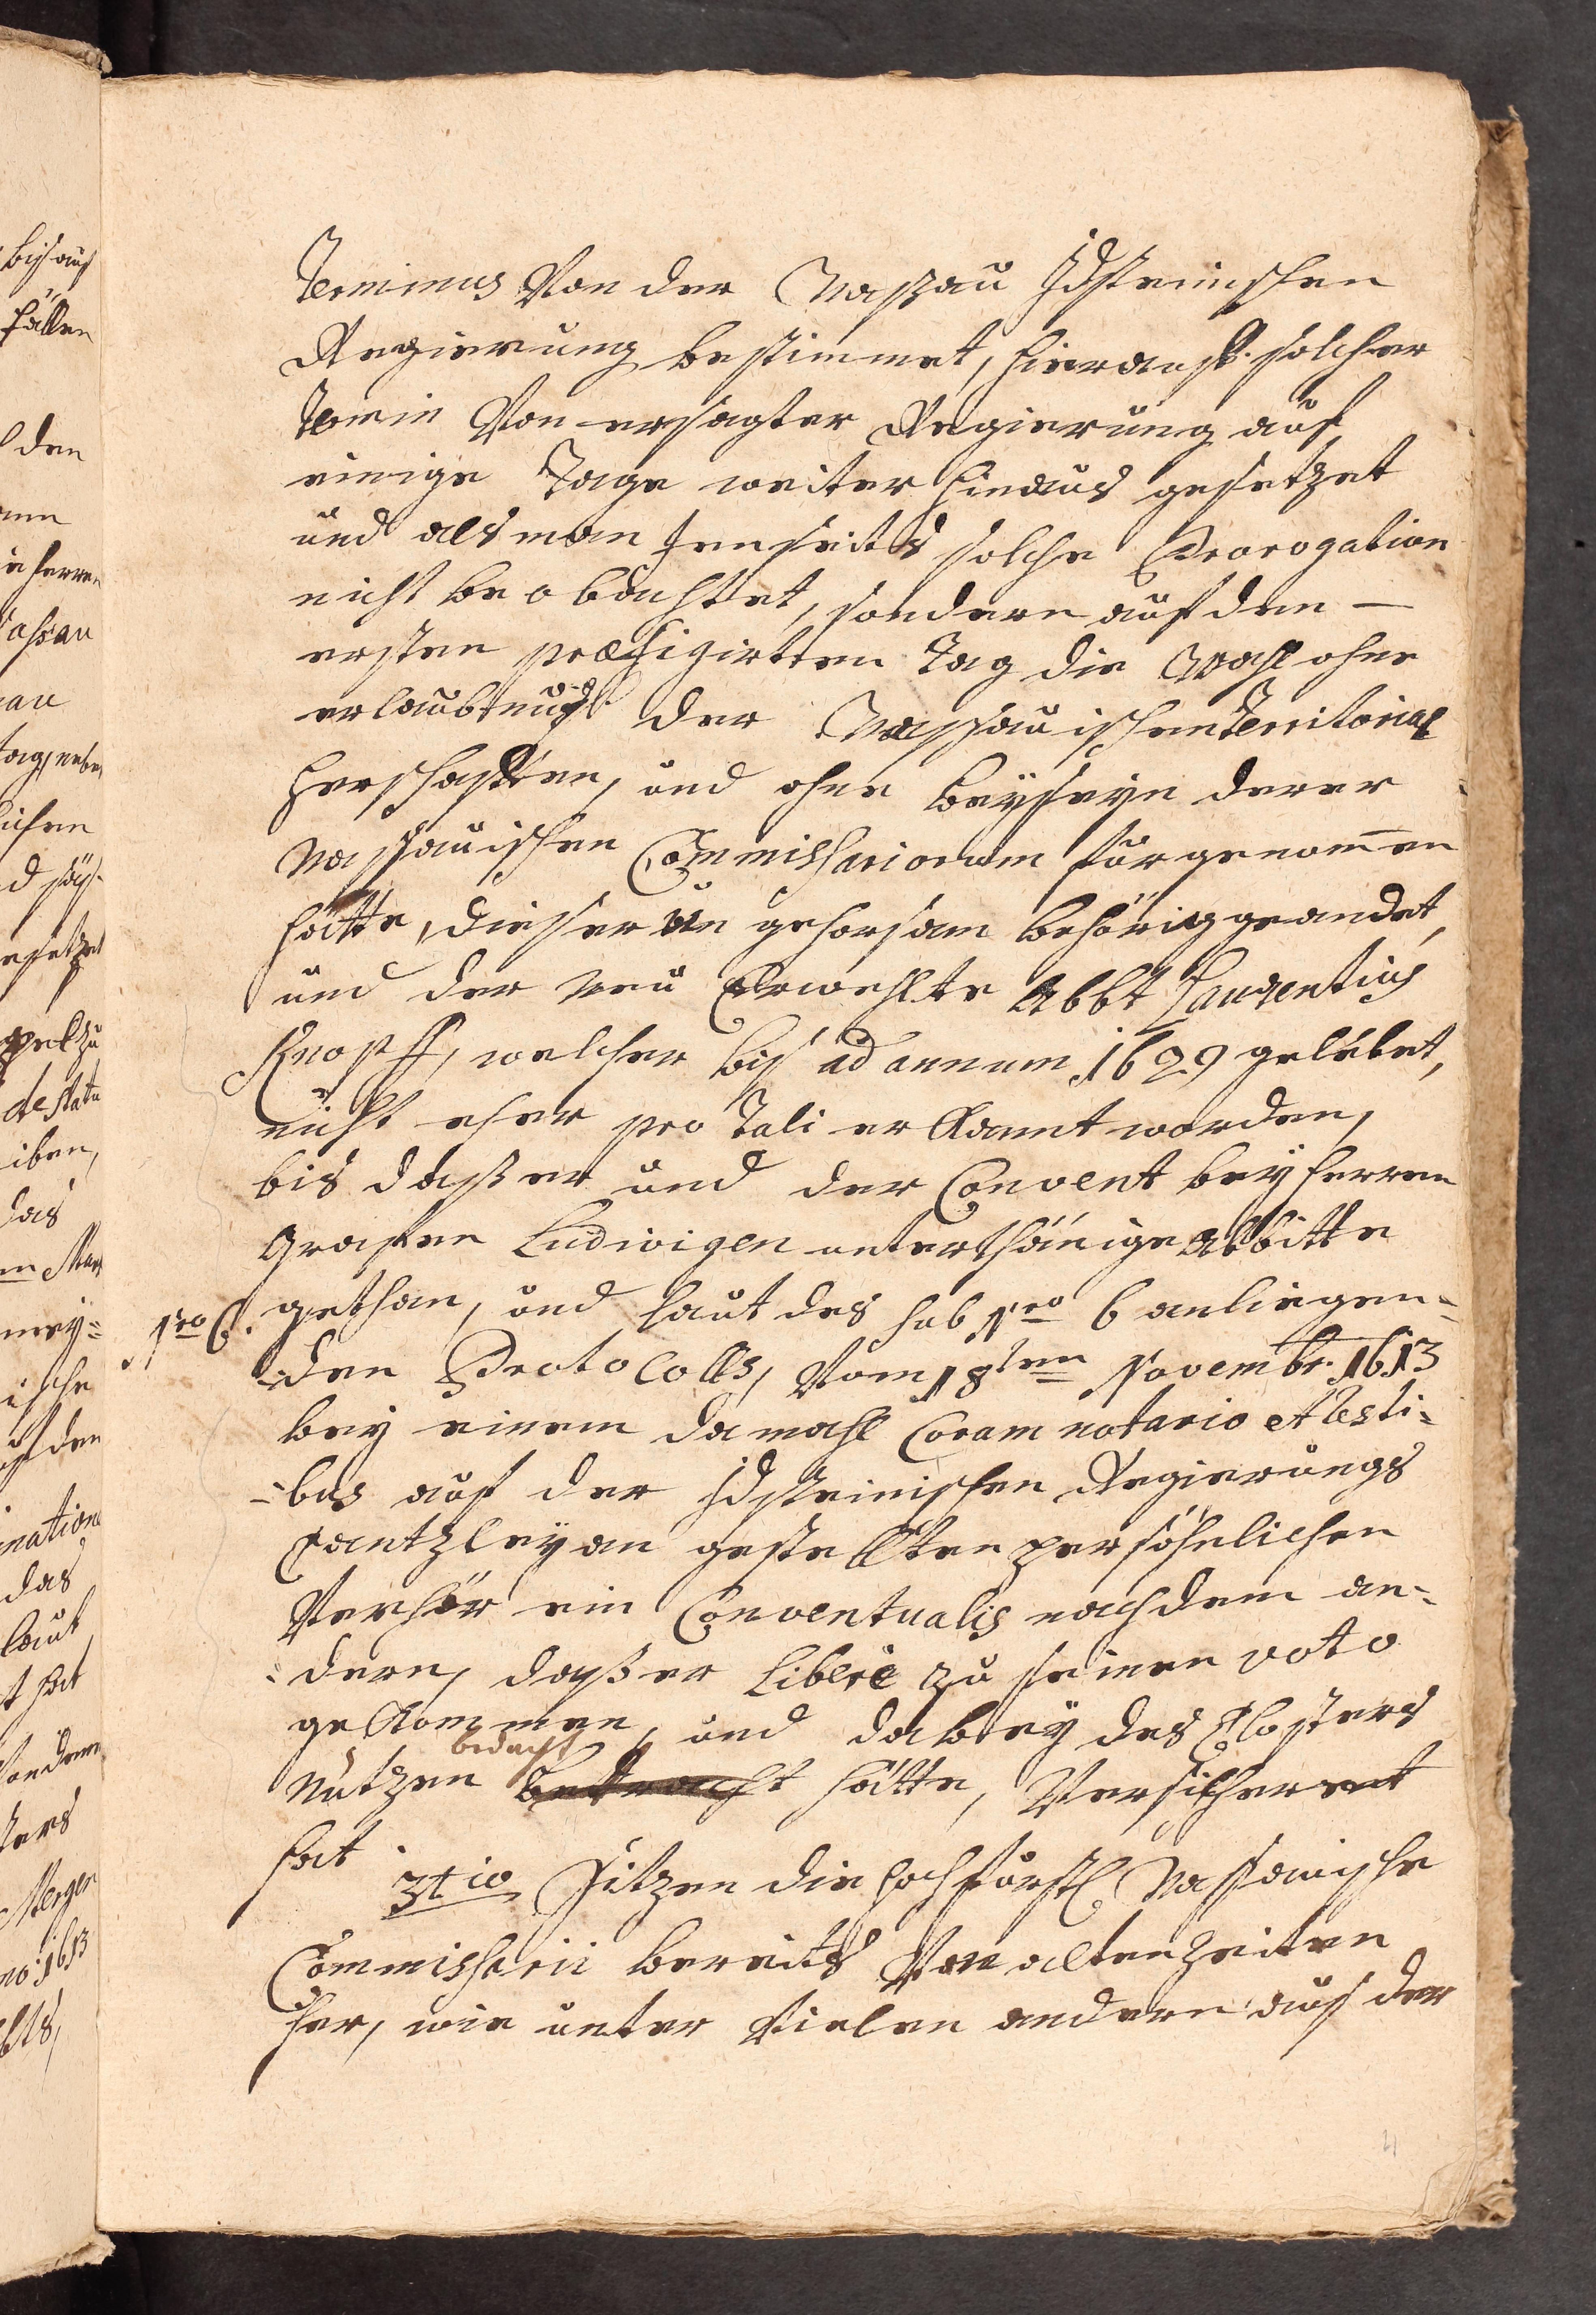 Terminus Von der Naßau Idsteinischen
Regierung bestimmet, hieranst. solcher
Termin Von ersagter Regierung auf
einige Tage weiter hinaus gesetzet
und als man Jenseits solche Prorogation
nicht beobachtet, sondern auf den —
ersten præfigirten Tag die Wahl ohne
erlaubtnuß der Nassauischen Territorial
Herschafften, und ohne beyseyn derer
Nassauischen Commissariorum fürgenom̄en
hätte, dieser un gehorsam behörig geandet,
und der neu Erwehlte Abbt Laurentius
Knopff, welcher biß ad annum 1629 gelebet,
nicht eher pro Tali erkannt worden,
bis daß er und der Convent bey Herren
Grafen Ludwigen unterthänige Abbitte
Nro 6. gethan, und laut des sub Nro 6 anliegen-
den Protocolls, Vom 18ten Novembr. 1613
bey einem damahl Coram notario et testi-
-bus auf der Idsteinischen Regierungs
Cantzley an gestellten persöhnlichen
Verhör ein Conventualis nach dem an-
-dern, daß er libere zu seinen voto
gekommen, und dabey des Closters
bedacht
Nutzen betracht hätte, Versicheret
hat
3tio Sitzen die hochfürstl. Nassauische
Commissarii bereits Von alten Zeiten
her, wie unter Vielen andern aus der
bis auf
fällen
den
Herren
assau
au
gesetzet
de statu
iben,
das
ische
nation
das
laut
t hat
Mergen
no: 1613